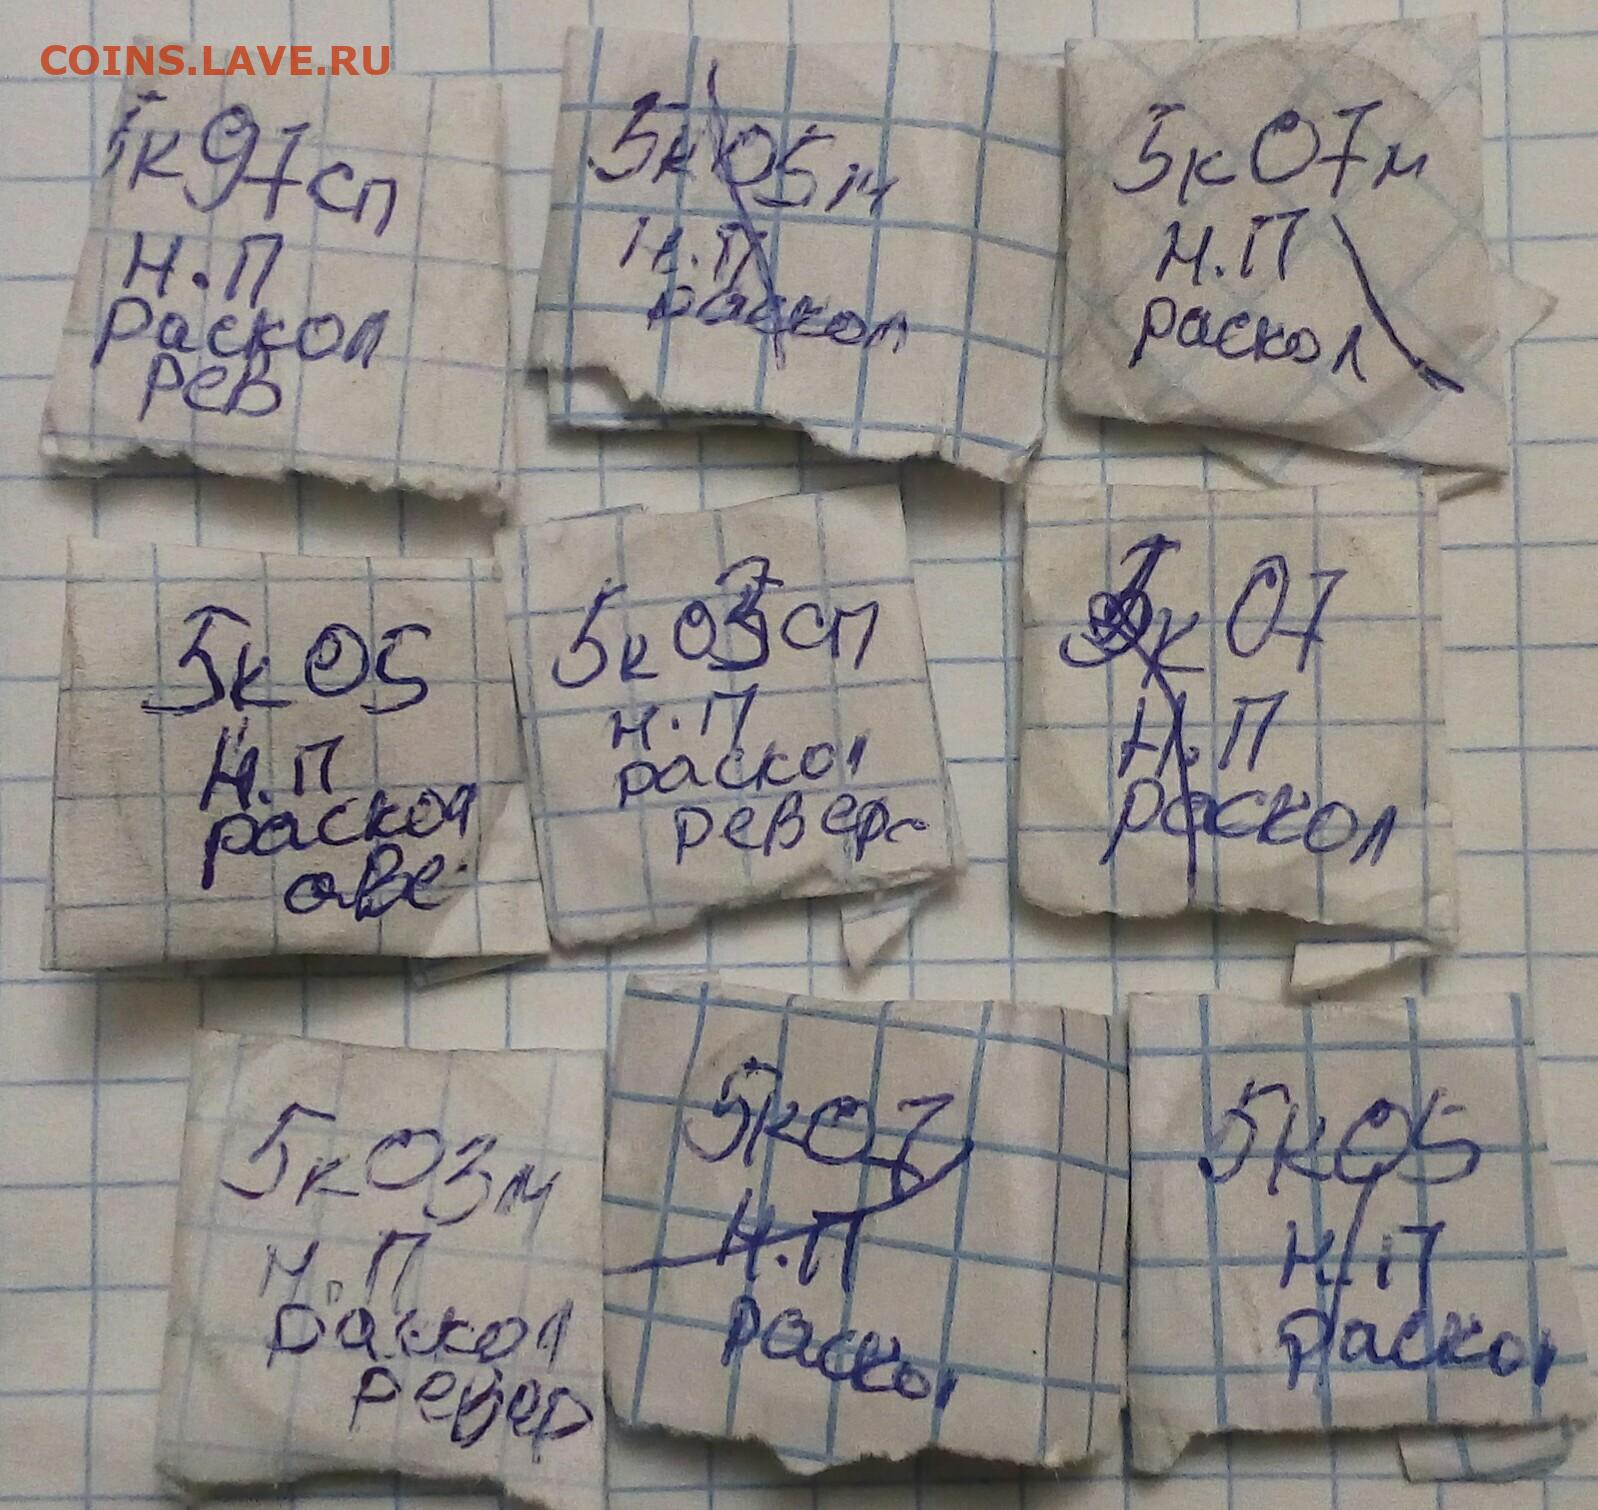 COINS.LAVE.RU
5к 97 сп
Н.П
раскол
рев
5к 05 м
Н.П
раскол
5к 07 м
Н.П
раскол
5к 05
Н.П
раскол
аве.
5к 03 сп
Н.П
раскол
реверс
5к 07
Н.П
раскол
5к 03 м
Н.П
раскол
ревер
5к 07
Н.П
раскол
5к 05
Н.П
раскол